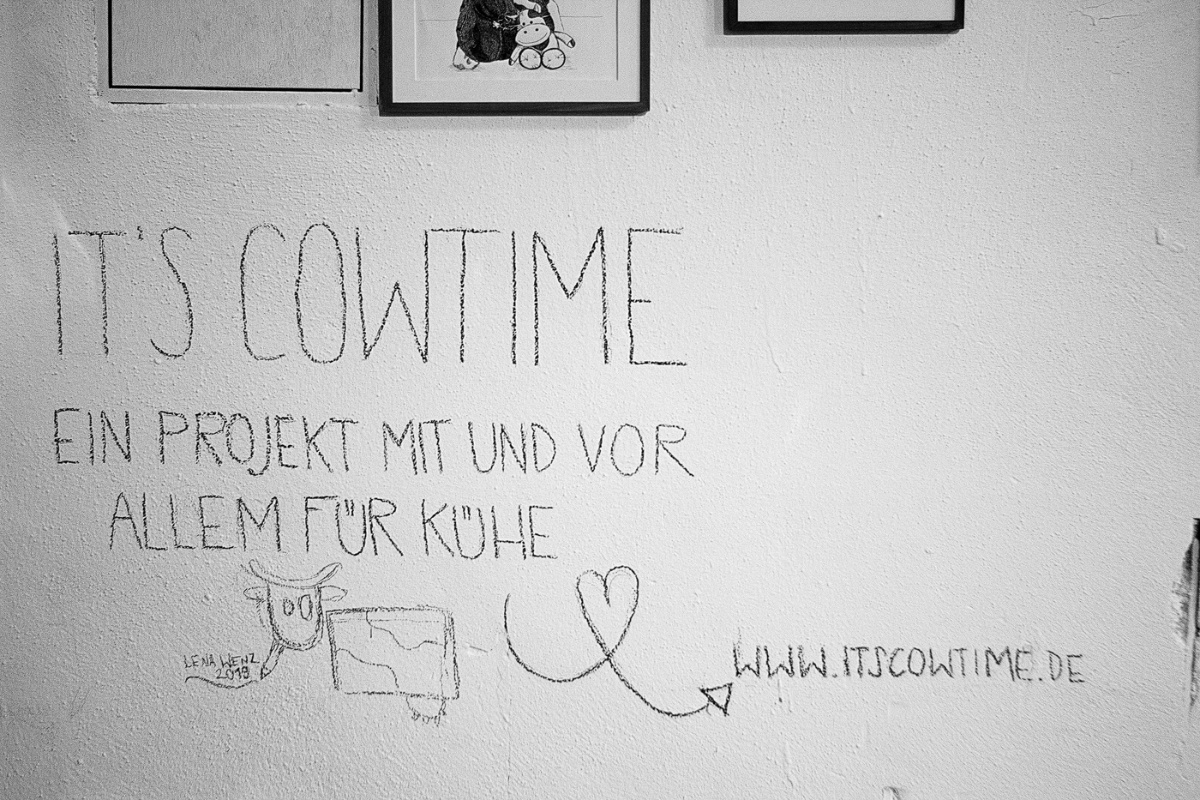 IT'S COWTIME
EIN PROJEKT MIT UND VOR
ALLEM FÜR KÜHE
LENA WENZ
2019
WWW.ITSCOWTIME.DE